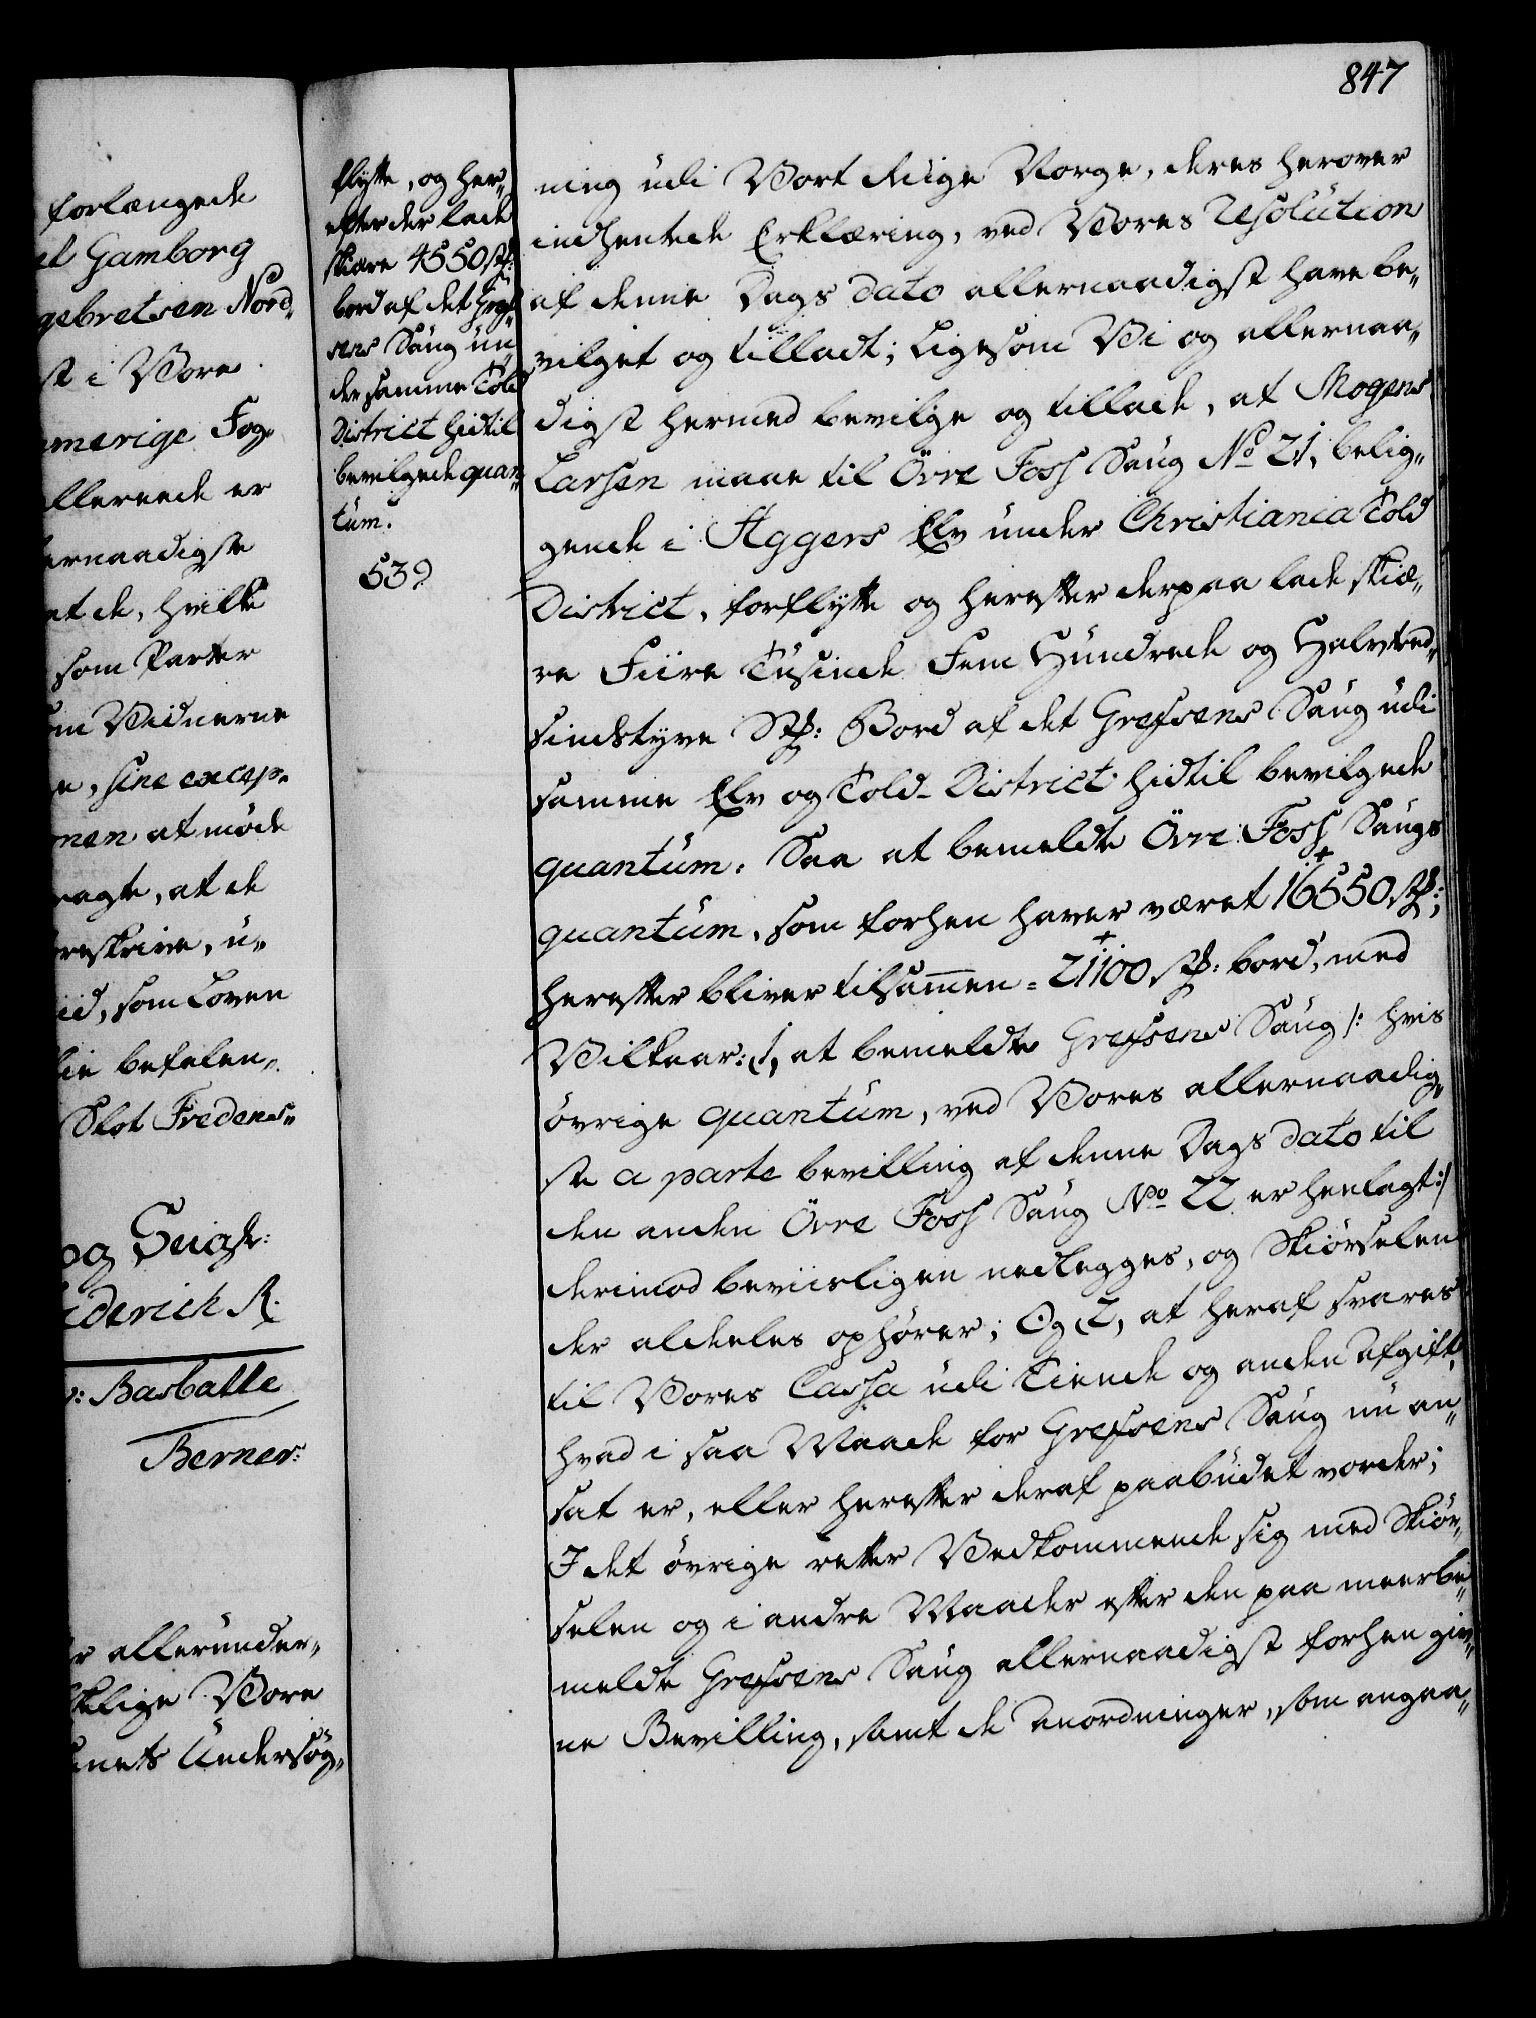 847
forlængede
el Gamborg
gebretsen Nord-
st i Vore
merige Fog-
allereede er
ernaadigst
at de, hvilke
som Parter
om Vidnerne
e, sine excep-
nen at møde
ragte, at de
reskrive, u-
iid, som Loven
lie befalen-
Slot Fredens-
og Seigl:
iderich R.
v: Barballe
Berner:
er allerunder-
Vore
inets Undersøg-
flytte, og her-
efter der lade
skiære 4550 st:
bord af det Gref-
sens Saug un-
der samme Told
District hidtil
bevilgede quan-
tum.
539
ning udi Vort Riige Norge, deres herover
indhentede Erklæring, ved Vores Resolution
af denne Dags dato allernaadigst have be-
vilget og tilladt; Ligesom Vi og allernaa-
digst hermed bevilge og tillade, at Mogens
Larsen maae til Övre Foss Saug No 21, belig-
gende i Aggers Elv under Christiania Told
District, forflytte og herefter derpaa lade skiæ-
re Fiire Tusinde Fem Hundrede og Halvtred-
sindstyve St: Bord af det Grefsens Saug udi
samme Elv og Told-District hidtil bevilgede
quantum. Saa at bemeldte Övre Foss Saugs
quantum, som forhen haver været 16550 st:;
herefter bliver tilsammen = 21100 st: bord, med
Vilkaar: 1, at bemeldte Grefsens Saug /: hvis
övrige quantum, ved Vores allernaadig-
ste a parte bevilling af denne Dags dato til
den anden Övre Foss Saug No 22 er henlagt :/
derimod beviisligen nedlegges, og Skiørselen
der aldeles ophører; Og 2, at heraf svares
til Vores Cassa udi Tiende og anden Afgift,
hvad i saa Maade for Grefsens Saug nu an-
sat er, eller herefter deraf paabudet vorder;
I det övrige retter Vedkommende sig med Skiør-
selen og i andre Maader efter den paa meerbe-
meldte Grefsens Saug allernaadigst forhen giv-
ne Bevilling, samt de Anordninger, som angaa-